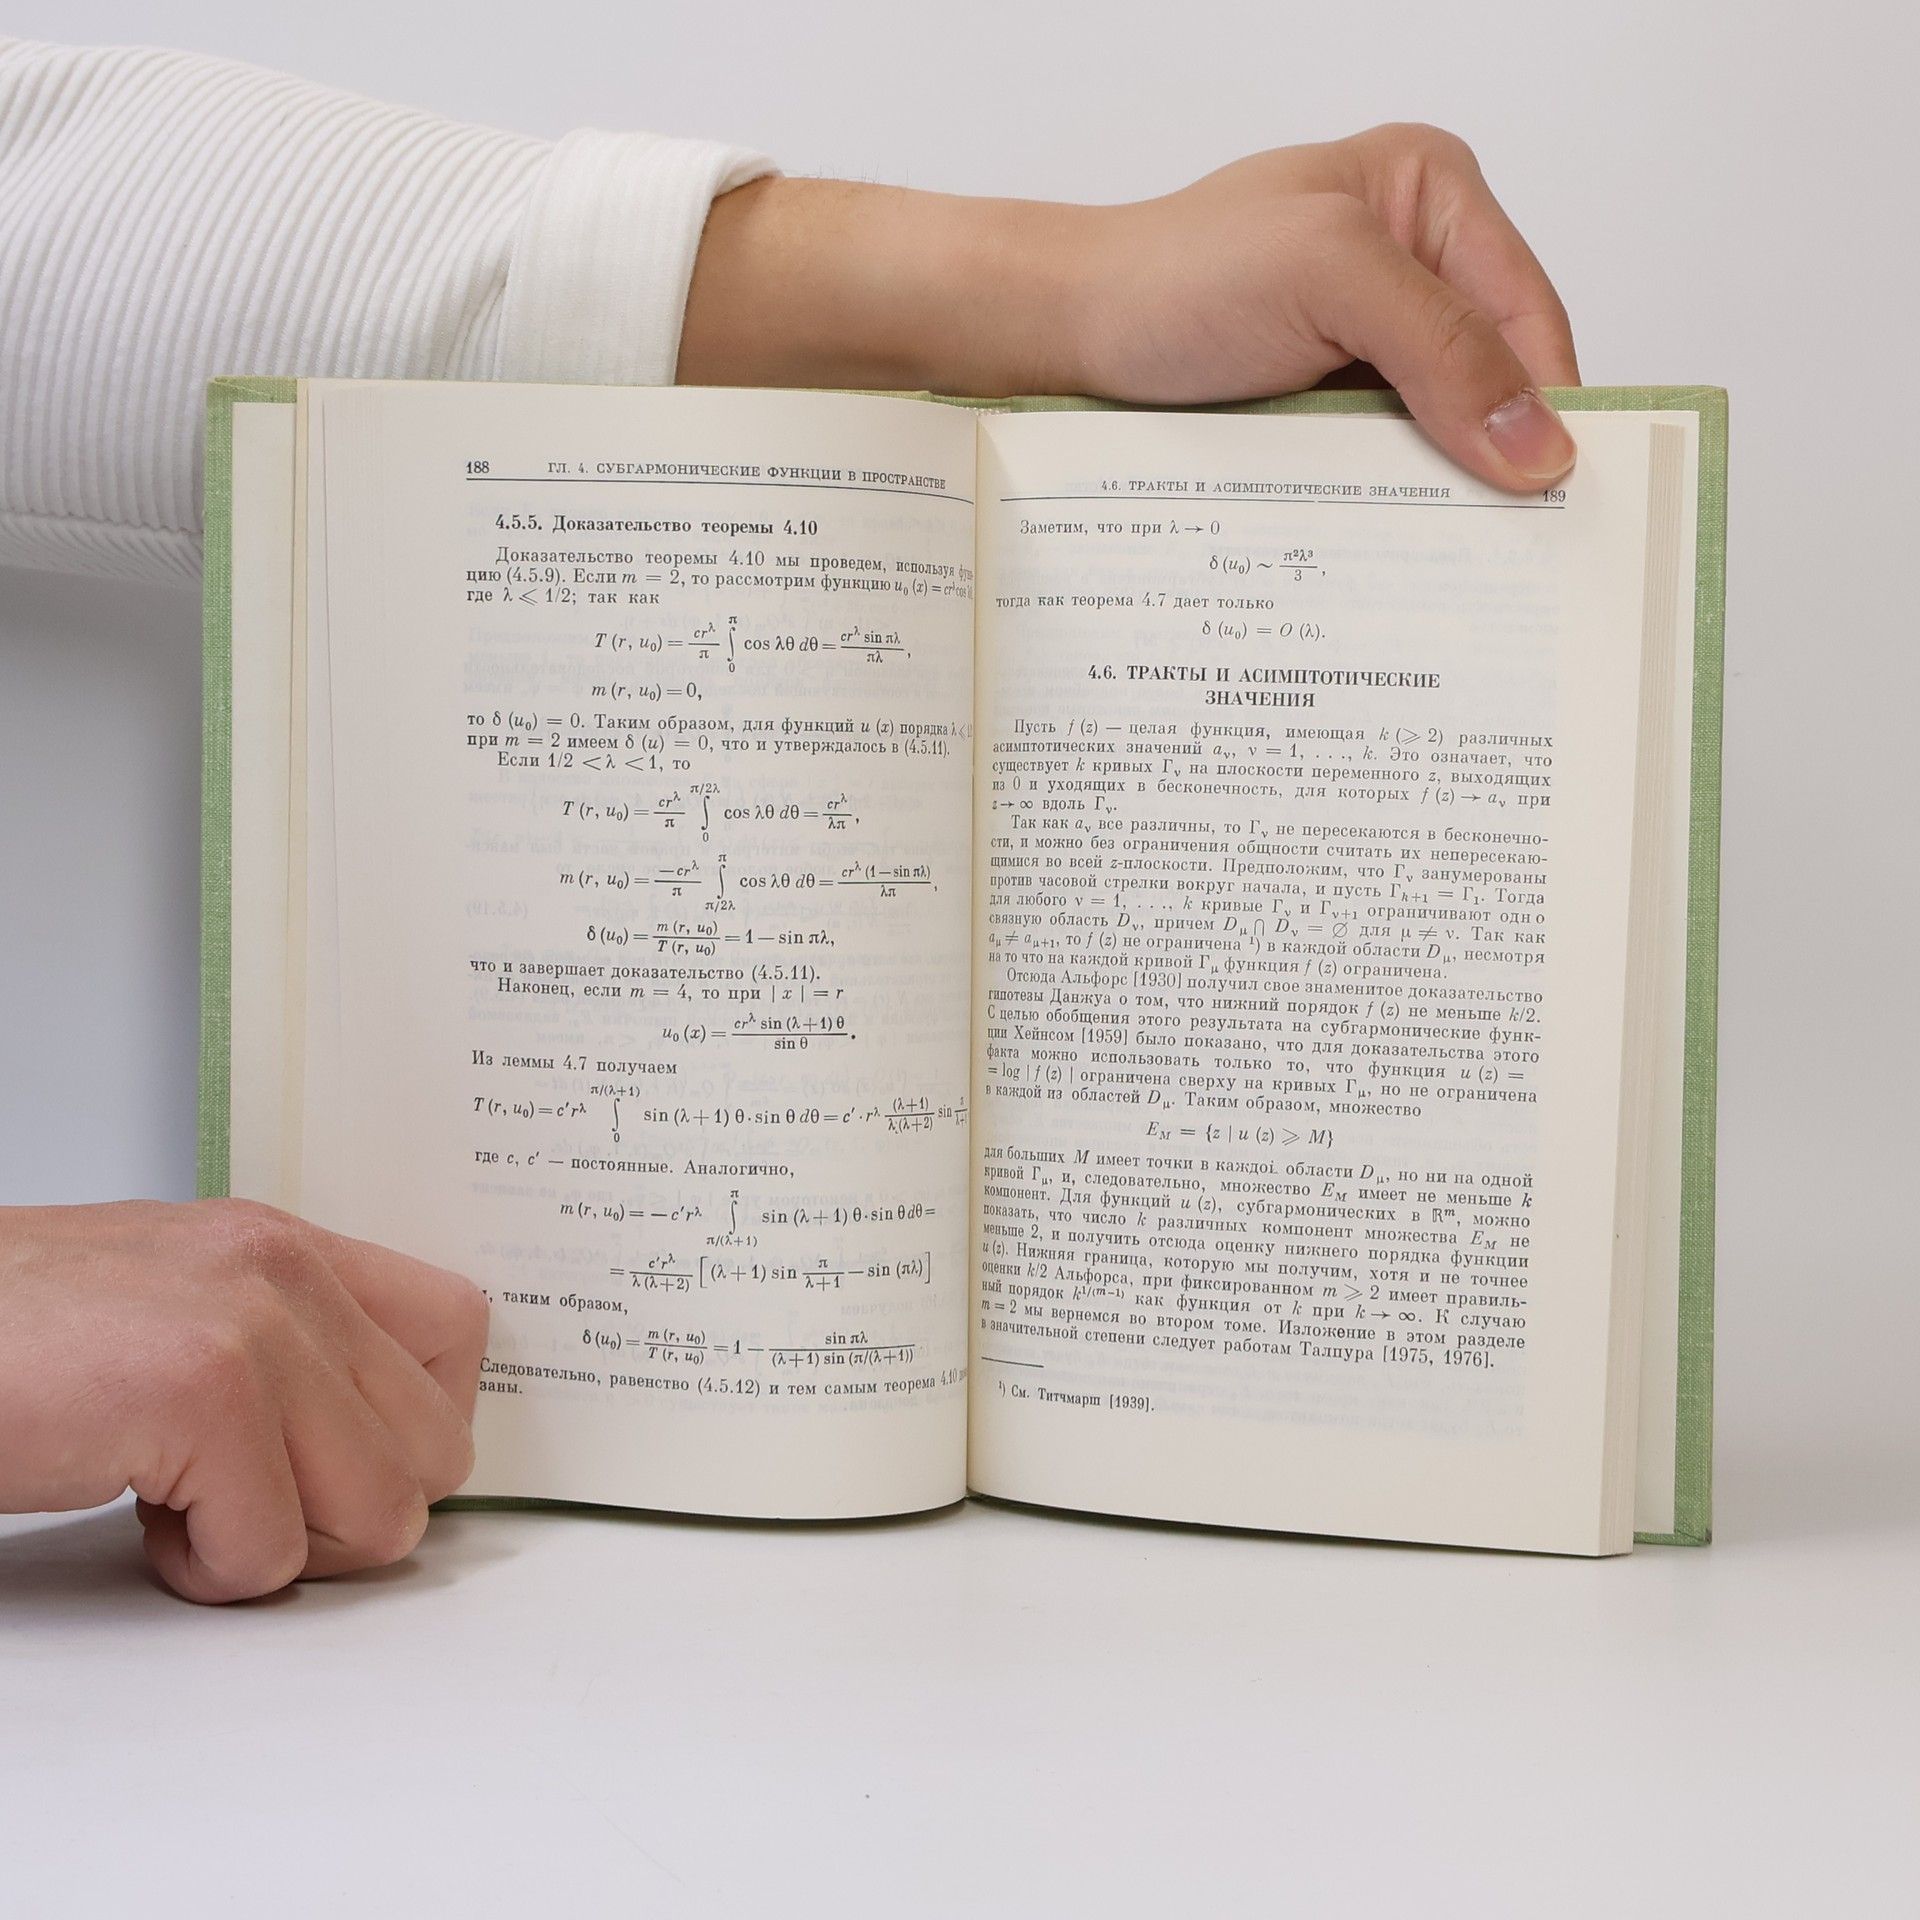 188 ГЛ. 4. СУБГАРМОНИЧЕСКИЕ ФУНКЦИИ В ПРОСТРАНСТВЕ
4.5.5. Доказательство теоремы 4.10
Доказательство теоремы 4.10 мы проведем, используя
цию (4.5.9). Если m = 2, то рассмотрим функцию u₀ (x) = cr^λ cos
где λ ⩽ 1/2; так как
T (r, u₀) = cr^λ/π ∫₀^π cos λθ dθ = cr^λ sin πλ / πλ,
m (r, u₀) = 0,
то δ (u₀) = 0. Таким образом, для функций u (x) порядка λ ⩽
при m = 2 имеем δ (u) = 0, что и утверждалось в (4.5.11).
Если 1/2 < λ < 1, то
T (r, u₀) = cr^λ/π ∫₀^{π/2λ} cos λθ dθ = cr^λ/λπ,
m (r, u₀) = −cr^λ/π ∫_{π/2λ}^π cos λθ dθ = cr^λ (1 − sin πλ)/λπ,
δ (u₀) = m (r, u₀)/T (r, u₀) = 1 − sin πλ,
что и завершает доказательство (4.5.11).
Наконец, если m = 4, то при | x | = r
u₀ (x) = cr^λ sin (λ + 1) θ / sin θ.
Из леммы 4.7 получаем
T (r, u₀) = c′r^λ ∫₀^{π/(λ+1)} sin (λ + 1) θ · sin θ dθ = c′ · r^λ (λ+1)/λ(λ+2) sin π/λ+1
где c, c′ — постоянные. Аналогично,
m (r, u₀) = − c′r^λ ∫_{π/(λ+1)}^π sin (λ + 1) θ · sin θ dθ =
= c′r^λ/λ (λ+2) [(λ + 1) sin π/λ+1 − sin (πλ)]
, таким образом,
δ (u₀) = m (r, u₀)/T (r, u₀) = 1 − sin πλ/(λ + 1) sin (π/(λ+1))
Следовательно, равенство (4.5.12) и тем самым теорема 4.10
заны.
4.6. ТРАКТЫ И АСИМПТОТИЧЕСКИЕ ЗНАЧЕНИЯ 189
Заметим, что при λ → 0
δ (u₀) ~ π²λ³/3,
тогда как теорема 4.7 дает только
δ (u₀) = O (λ).
4.6. ТРАКТЫ И АСИМПТОТИЧЕСКИЕ
ЗНАЧЕНИЯ
Пусть f (z) — целая функция, имеющая k (⩾ 2) различных
асимптотических значений a_ν, ν = 1, . . ., k. Это означает, что
существует k кривых Γ_ν на плоскости переменного z, выходящих
из 0 и уходящих в бесконечность, для которых f (z) → a_ν при
z → ∞ вдоль Γ_ν.
Так как a_ν все различны, то Γ_ν не пересекаются в бесконечно-
сти, и можно без ограничения общности считать их непересекаю-
щимися во всей z-плоскости. Предположим, что Γ_ν занумерованы
против часовой стрелки вокруг начала, и пусть Γ_{k+1} = Γ₁. Тогда
для любого ν = 1, . . ., k кривые Γ_ν и Γ_{ν+1} ограничивают одно
связную область D_ν, причем D_μ ⋂ D_ν = ∅ для μ ≠ ν. Так как
a_μ ≠ a_{μ+1}, то f (z) не ограничена ¹) в каждой области D_μ, несмотря
на то что на каждой кривой Γ_μ функция f (z) ограничена.
Отсюда Альфорс [1930] получил свое знаменитое доказательство
гипотезы Данжуа о том, что нижний порядок f (z) не меньше k/2.
С целью обобщения этого результата на субгармонические функ-
ции Хейнсом [1959] было показано, что для доказательства этого
факта можно использовать только то, что функция u (z) =
= log | f (z) | ограничена сверху на кривых Γ_μ, но не ограничена
в каждой из областей D_μ. Таким образом, множество
E_M = {z | u (z) ⩾ M}
для больших M имеет точки в каждой области D_μ, но ни на одной
кривой Γ_μ, и, следовательно, множество E_M имеет не меньше k
компонент. Для функций u (z), субгармонических в ℝ^m, можно
показать, что число k различных компонент множества E_M не
меньше 2, и получить отсюда оценку нижнего порядка функции
u (z). Нижняя граница, которую мы получим, хотя и не точнее
оценки k/2 Альфорса, при фиксированном m ⩾ 2 имеет правиль-
ный порядок k^{1/(m−1)} как функция от k при k → ∞. К случаю
m = 2 мы вернемся во втором томе. Изложение в этом разделе
в значительной степени следует работам Талпура [1975, 1976].
¹) См. Титчмарш [1939].